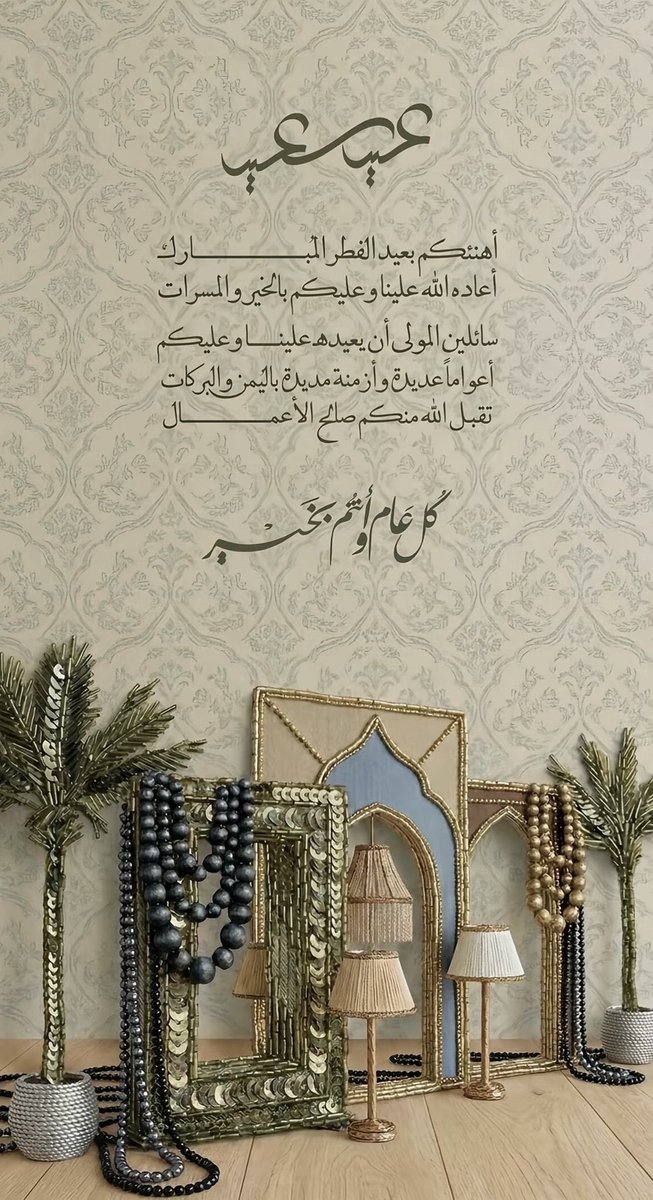 عيد سعيد
أهنئكم بعيد الفطر المبـــــارك
أعاده الله علينا وعليكم بالخير والمسرات
سائلين المولى أن يعيده علينـــا وعليكم
أعواماً عديدة وأزمنة مديدة باليمن والبركات
تقبل الله منكم صالح الأعمـــــال
كُل عَام وأنتُم بخَـــير